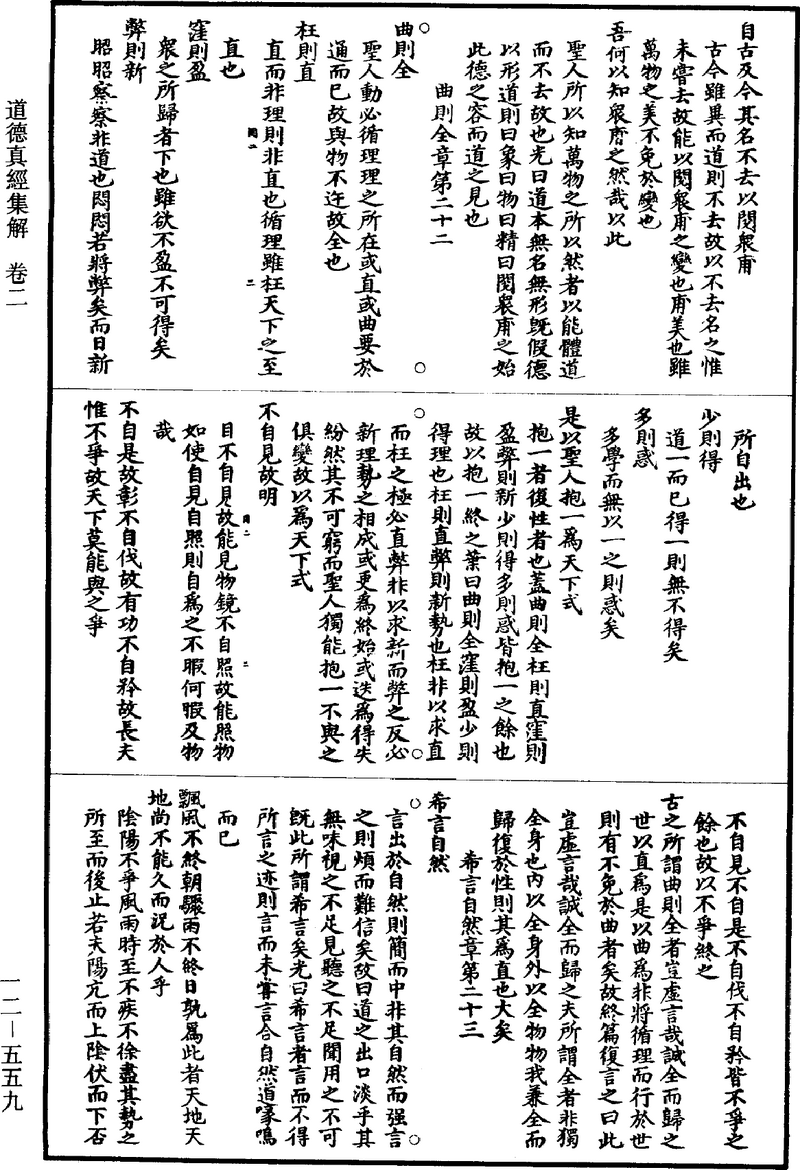 道德真經集解　卷二
自古及今其名不去以閱衆甫
古今雖異而道則不去故以不去名之惟
未嘗去故能以閱衆甫之變也甫美也雖
萬物之美不免於變也
吾何以知衆甫之然哉以此
聖人所以知萬物之所以然者以能體道
而不去故也光曰道本無名無形旣假德
以形道則曰象曰物曰精曰閱衆甫之始
此德之容而道之見也
曲則全章第二十二
曲則全
聖人動必循理理之所在或直或曲要於
通而已故與物不迕故全也
枉則直
直而非理則非直也循理雖枉天下之至
直也
窪則盈
衆之所歸者下也雖欲不盈不可得矣
弊則新
昭昭察察非道也悶悶若將弊矣而日新
所自出也
少則得
道一而已得一則無不得矣
多則惑
多學而無以一之則惑矣
是以聖人抱一爲天下式
抱一者復性者也蓋曲則全枉則直窪則
盈弊則新少則得多則惑皆抱一之餘也
故以抱一終之葉曰曲則全窪則盈少則
得理也枉則直弊則新勢也枉非以求直
而枉之極必直弊非以求新而弊之反必
新理勢之相成或更爲終始或迭爲得失
紛然其不可窮而聖人獨能抱一不與之
俱變故以爲天下式
不自見故明
目不自見故能見物鏡不自照故能照物
如使自見自照則自爲之不暇何暇及物
哉
不自是故彰不自伐故有功不自矜故長夫
惟不爭故天下莫能與之爭
不自見不自是不自伐不自矜皆不爭之
餘也故以不爭終之
古之所謂曲則全者豈虛言哉誠全而歸之
世以直爲是以曲爲非將循理而行於世
則有不免於曲者矣故終篇復言之曰此
豈虛言哉誠全而歸之夫所謂全者非獨
全身也内以全身外以全物物我兼全而
歸復於性則其爲直也大矣
希言自然章第二十三
希言自然
言出於自然則簡而中非其自然而强言
之則煩而難信矣故曰道之出口淡乎其
無味視之不足見聽之不足聞用之不可
旣此所謂希言矣光曰希言者言而不得
所言之迹則言而未嘗言合自然道喙鳴
而已
飄風不終朝驟雨不終日孰爲此者天地天
地尚不能久而況於人乎
陰陽不爭風雨時至不疾不徐盡其勢之
所至而後止若夫陽亢而上陰伏而下否
一二—五五九